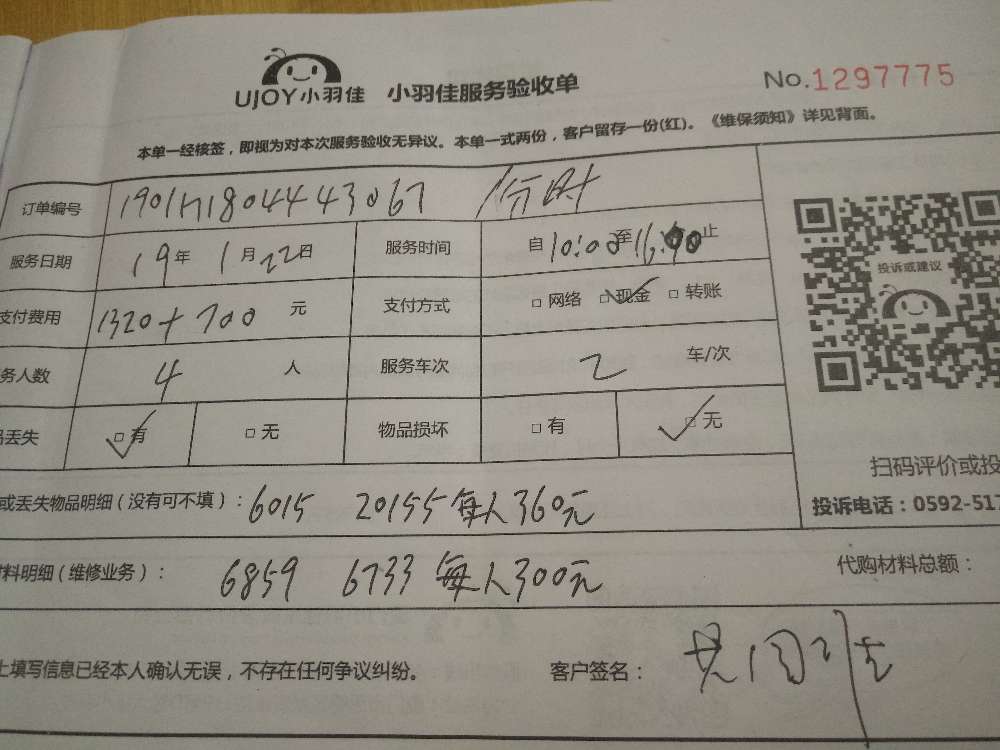 UJOY小羽佳 小羽佳服务验收单 No.1297775
本单一经核签，即视为对本次服务验收无异议。本单一式两份，客户留存一份(红)。《维保须知》详见背面。
订单编号
服务日期 19年 1月22日 服务时间 自10:00至 止
支付费用 1320+700 元 支付方式 □网络 □现金 □转账
务人数 4 人 服务车次 2 车/次
丢失 □有 □无 物品损坏 □有 □无
投诉或建议
扫码评价或投
投诉电话：0592-51
或丢失物品明细（没有可不填）：6015 20155每人360元
料明细（维修业务）：6859 6733每人300元 代购材料总额：
上填写信息已经本人确认无误，不存在任何争议纠纷。 客户签名：